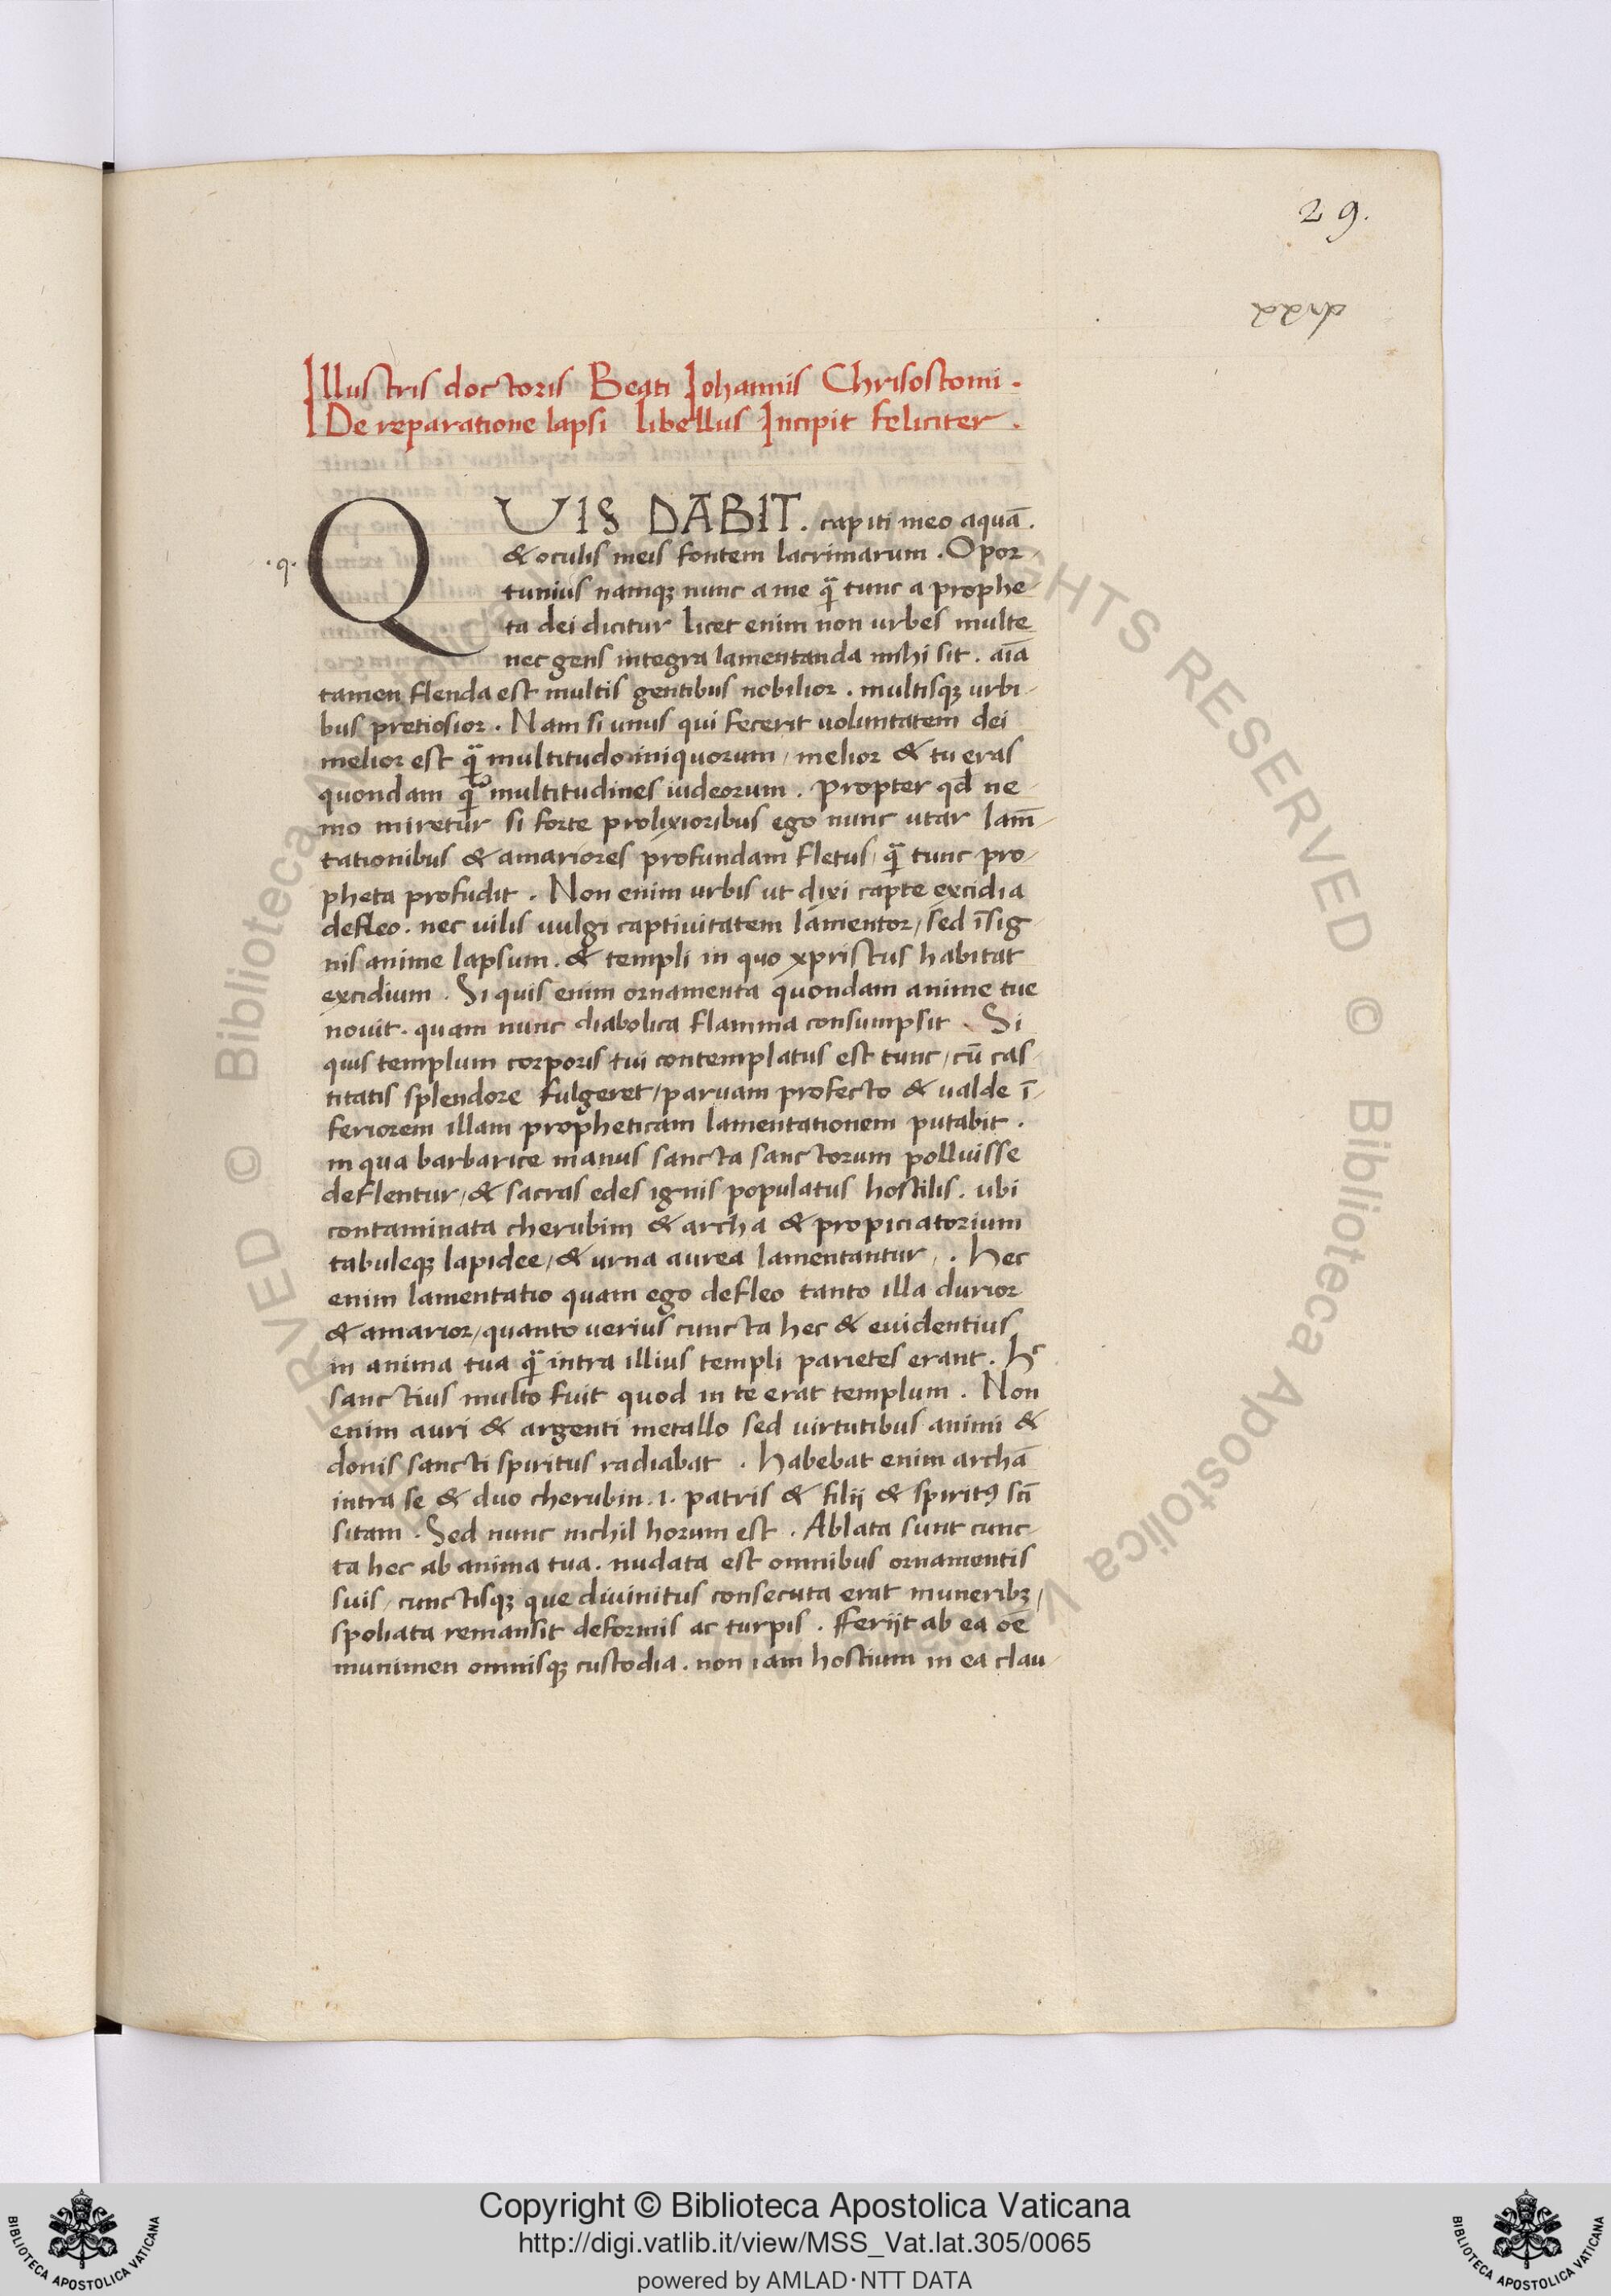 29.
Illustris doctoris Beati Iohannis Chrisostomi.
De reparatione lapsi libellus Incipit feliciter.
.q.
QUIS DABIT. capiti meo aquā.
& oculis meis fontem lacrimarum. Opor-
tunius namqꝫ nunc a me qᷓ tunc a prophe-
ta dei dicitur licet enim non urbes multe
nec gens integra lamentanda mihi sit. aīa
tamen flenda est multis gentibus nobilior. multisqꝫ urbi-
bus pretiosior. Nam si unus qui fecerit uoluntatem dei
melior est qᷓ multitudo iniquorum / melior & tu eras
quondam qᷓ multitudines iudeorum. Propter qd̄ ne-
mo miretur si forte prolixioribus ego nunc utar lam̄-
tationibus & amariores profundam fletus / qᷓ tunc pro-
pheta profudit. Non enim urbis ut dixi capte excidia
defleo. nec uilis uulgi captiuitatem lamentor / sed īsig-
nis anime lapsum. & templi in quo xpristus habitat
excidium. Si quis enim ornamenta quondam anime tue
nouit. quam nunc diabolica flamma consumpsit. Si
quis templum corporis tui contemplatus est tunc / cū cas-
titatis splendore fulgeret / paruam profecto & ualde ī-
feriorem illam propheticam lamentationem putabit.
in qua barbarice manus sancta sanctorum polluisse
deflentur / & sacras edes ignis populatus hostilis. ubi
contaminata cherubim & archa & propiciatorium
tabuleqꝫ lapidee / & urna aurea lamentantur. Hec
enim lamentatio quam ego defleo tanto illa durior
& amarior / quanto uerius cuncta hec & euidentius
in anima tua qᷓ intra illius templi parietes erant. Hᶜ
sanctius multo fuit quod in te erat templum. Non
enim auri & argenti metallo sed uirtutibus animi &
donis sancti spiritus radiabat. Habebat enim archā
intra se & duo cherubin .i. patris & filii & spiritꝰ sc̄i
sitam. Sed nunc nichil horum est. Ablata sunt cunc-
ta hec ab anima tua. nudata est omnibus ornamentis
suis / cunctisqꝫ que diuinitus consecuta erat muneribꝫ /
spoliata remansit deformis ac turpis. fferiit ab ea oē
munimen omnisqꝫ custodia. non iam hostium in ea clau-
Copyright © Biblioteca Apostolica Vaticana
http://digi.vatlib.it/view/MSS_Vat.lat.305/0065
powered by AMLAD·NTT DATA
BIBLIOTECA APOSTOLICA VATICANA
BIBLIOTECA APOSTOLICA VATICANA